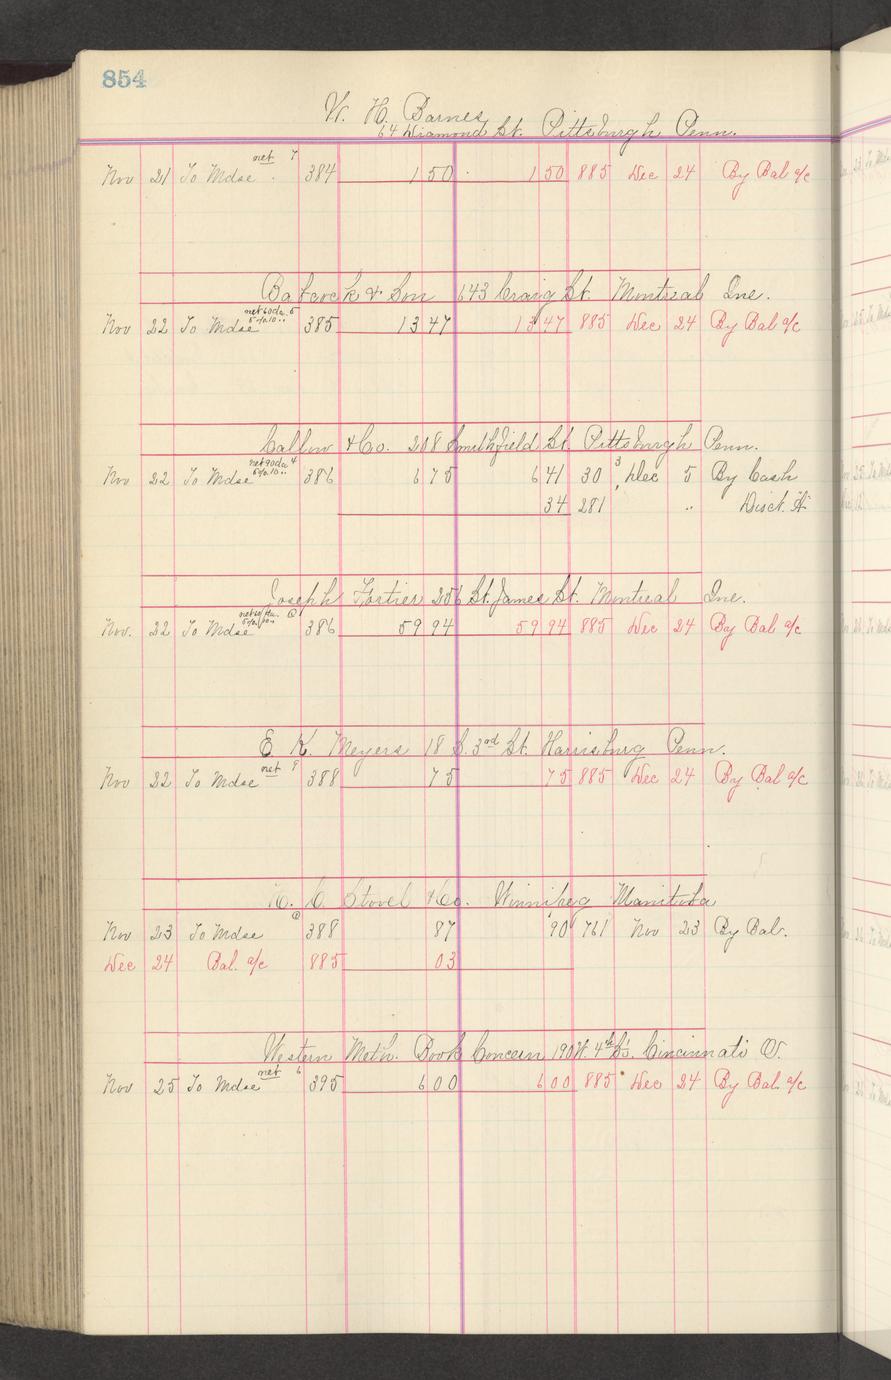 854
W. H. Barnes
64 Diamond St. Pittsburgh Penn.
Nov 21 To Mdse net 7 384 1 50 1 50 885 Dec 24 By Bal a/c
Babcock & Son 643 Craig St. Montreal Que.
Nov 22 To Mdse net 60 da. 5 385 13 47 13 47 885 Dec 24 By Bal a/c
Callow & Co. 208 Smithfield St. Pittsburgh Penn.
Nov 22 To Mdse net 90 da 4 386 6 75 6 41 30 3 Dec 5 By Cash
34 281 " Disct.
Joseph Fortier 256 St. James St. Montreal Que.
Nov. 22 To Mdse 386 59 94 59 94 885 Dec 24 By Bal a/c
E. K. Meyers 18 S. 3rd St. Harrisburg Penn.
Nov 22 To Mdse net 8 388 75 75 885 Dec 24 By Bal a/c
Stovel & Co. Winnipeg Manitoba
Nov 23 To Mdse 388 87 90 761 Nov 23 By Bal.
Dec 24 Bal. a/c 885 03
Western Meth. Book Concern 190 W. 4th St. Cincinnati O.
Nov 25 To Mdse net 6 395 6 00 6 00 885 Dec 24 By Bal. a/c